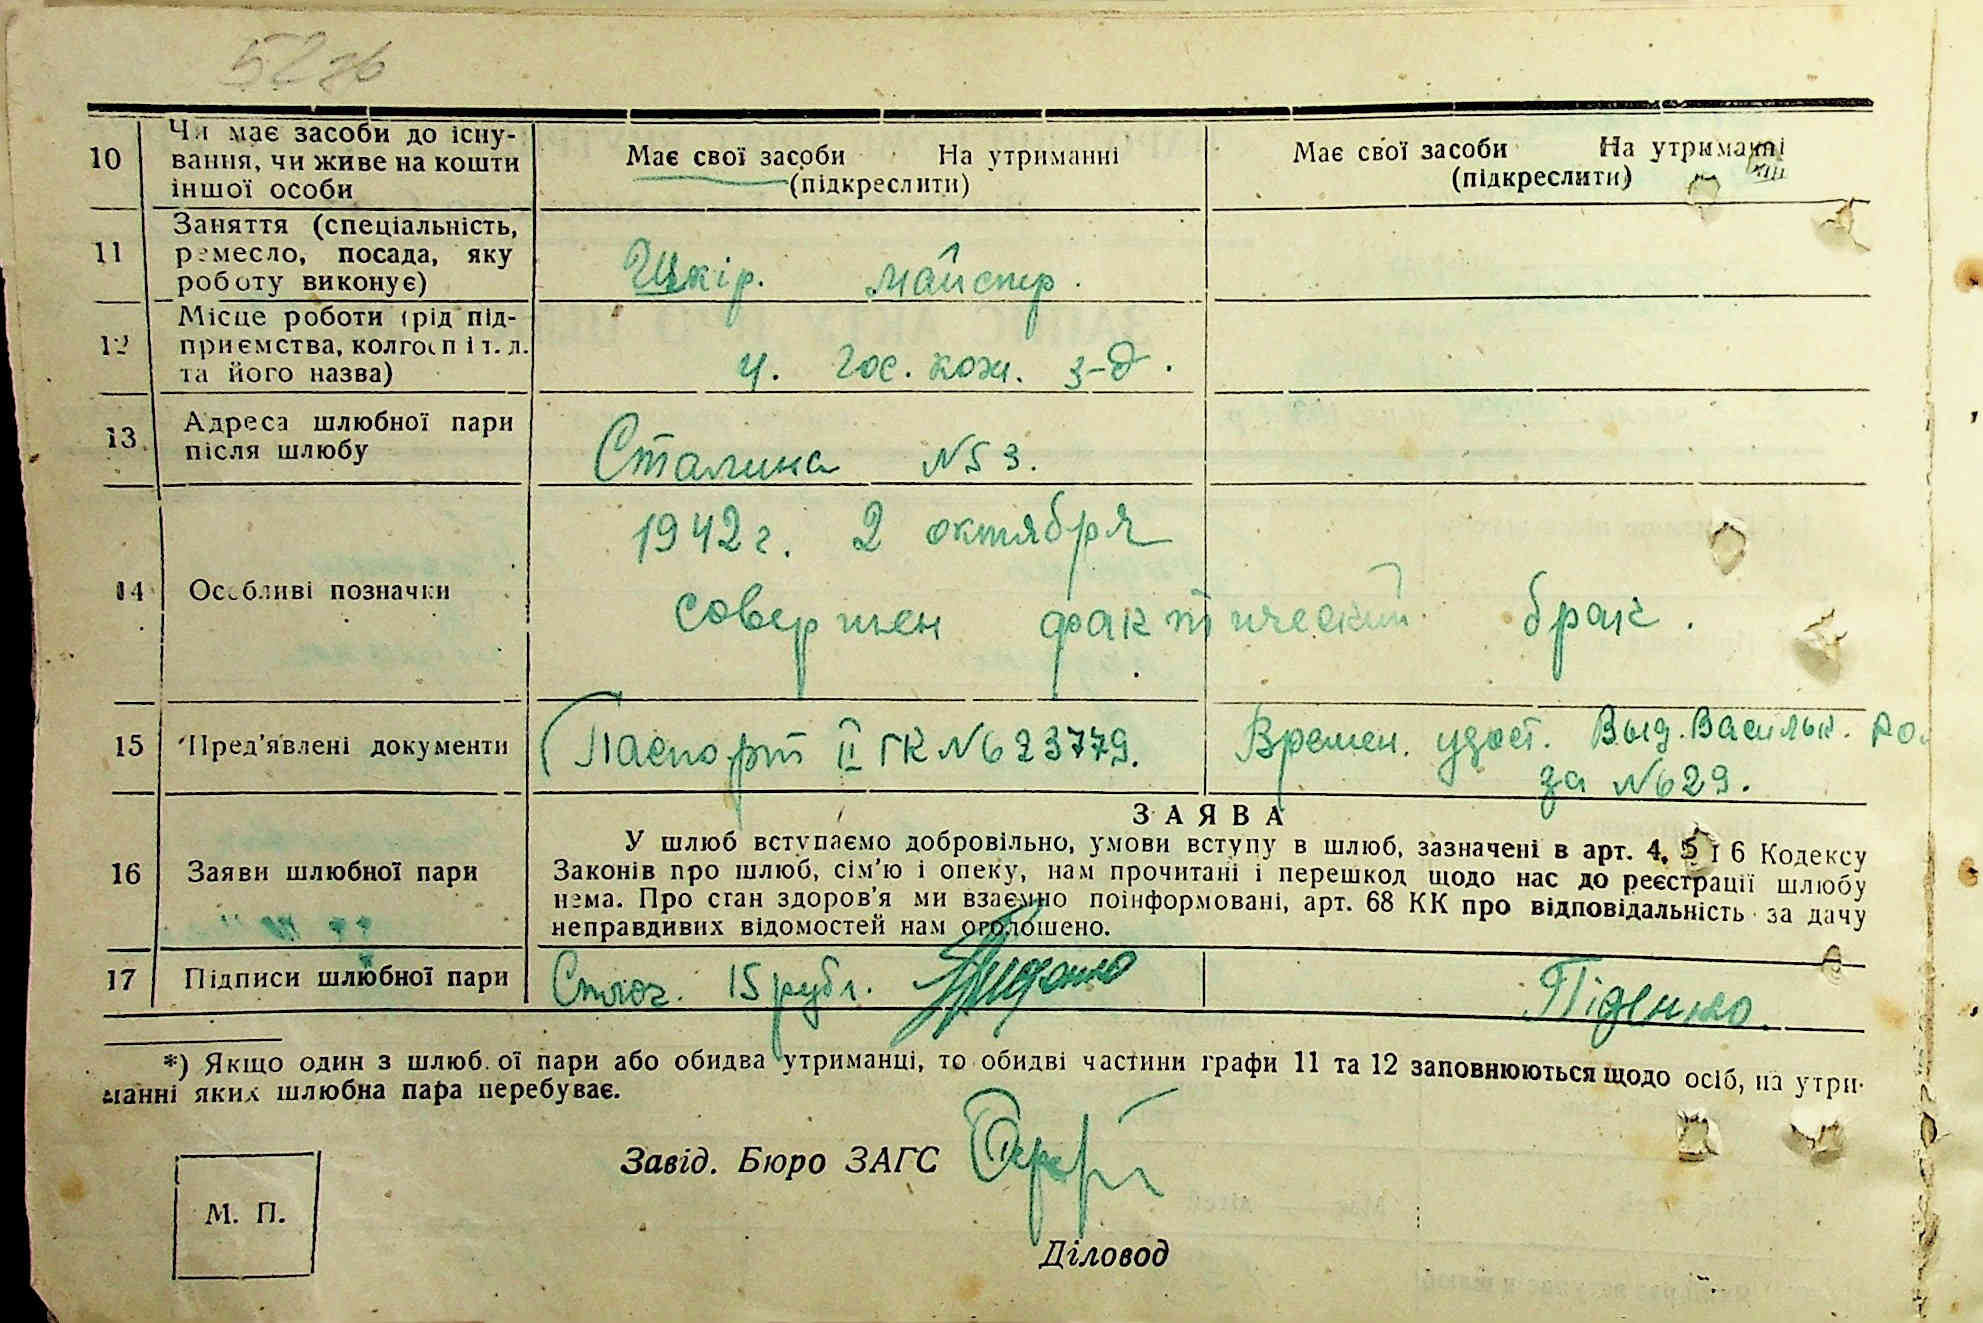 52 зв
10 Чи має засоби до існу-
вання, чи живе на кошти
іншої особи
Має свої засоби На утриманні
(підкреслити)
Має свої засоби На утриманні
(підкреслити)
11 Заняття (спеціальність,
ремесло, посада, яку
роботу виконує)
Шкір. майстр.
12 Місце роботи (рід під-
приємства, колгосп і т. д.
та його назва)
У. Гос. кож. з-д.
13 Адреса шлюбної пари
після шлюбу
Сталина № 53.
14 Особливі позначки
1942 г. 2 октября
совершен фактический брак.
15 Пред'явлені документи
Паспорт II ГК № 623779.
Времен. удост. Выд. Васильк. Ро
за № 629.
16 Заяви шлюбної пари
ЗАЯВА
У шлюб вступаємо добровільно, умови вступу в шлюб, зазначені в арт. 4, 5 і 6 Кодексу
Законів про шлюб, сім'ю і опеку, нам прочитані і перешкод щодо нас до реєстрації шлюбу
нема. Про стан здоров'я ми взаємно поінформовані, арт. 68 КК про відповідальність за дачу
неправдивих відомостей нам оголошено.
17 Підписи шлюбної пари
15 рубл. Піденко
Піденко.
*) Якщо один з шлюб. ої пари або обидва утриманці, то обидві частини графи 11 та 12 заповнюються щодо осіб, на утри-
манні яких шлюбна пара перебуває.
Завід. Бюро ЗАГС
М. П.
Діловод